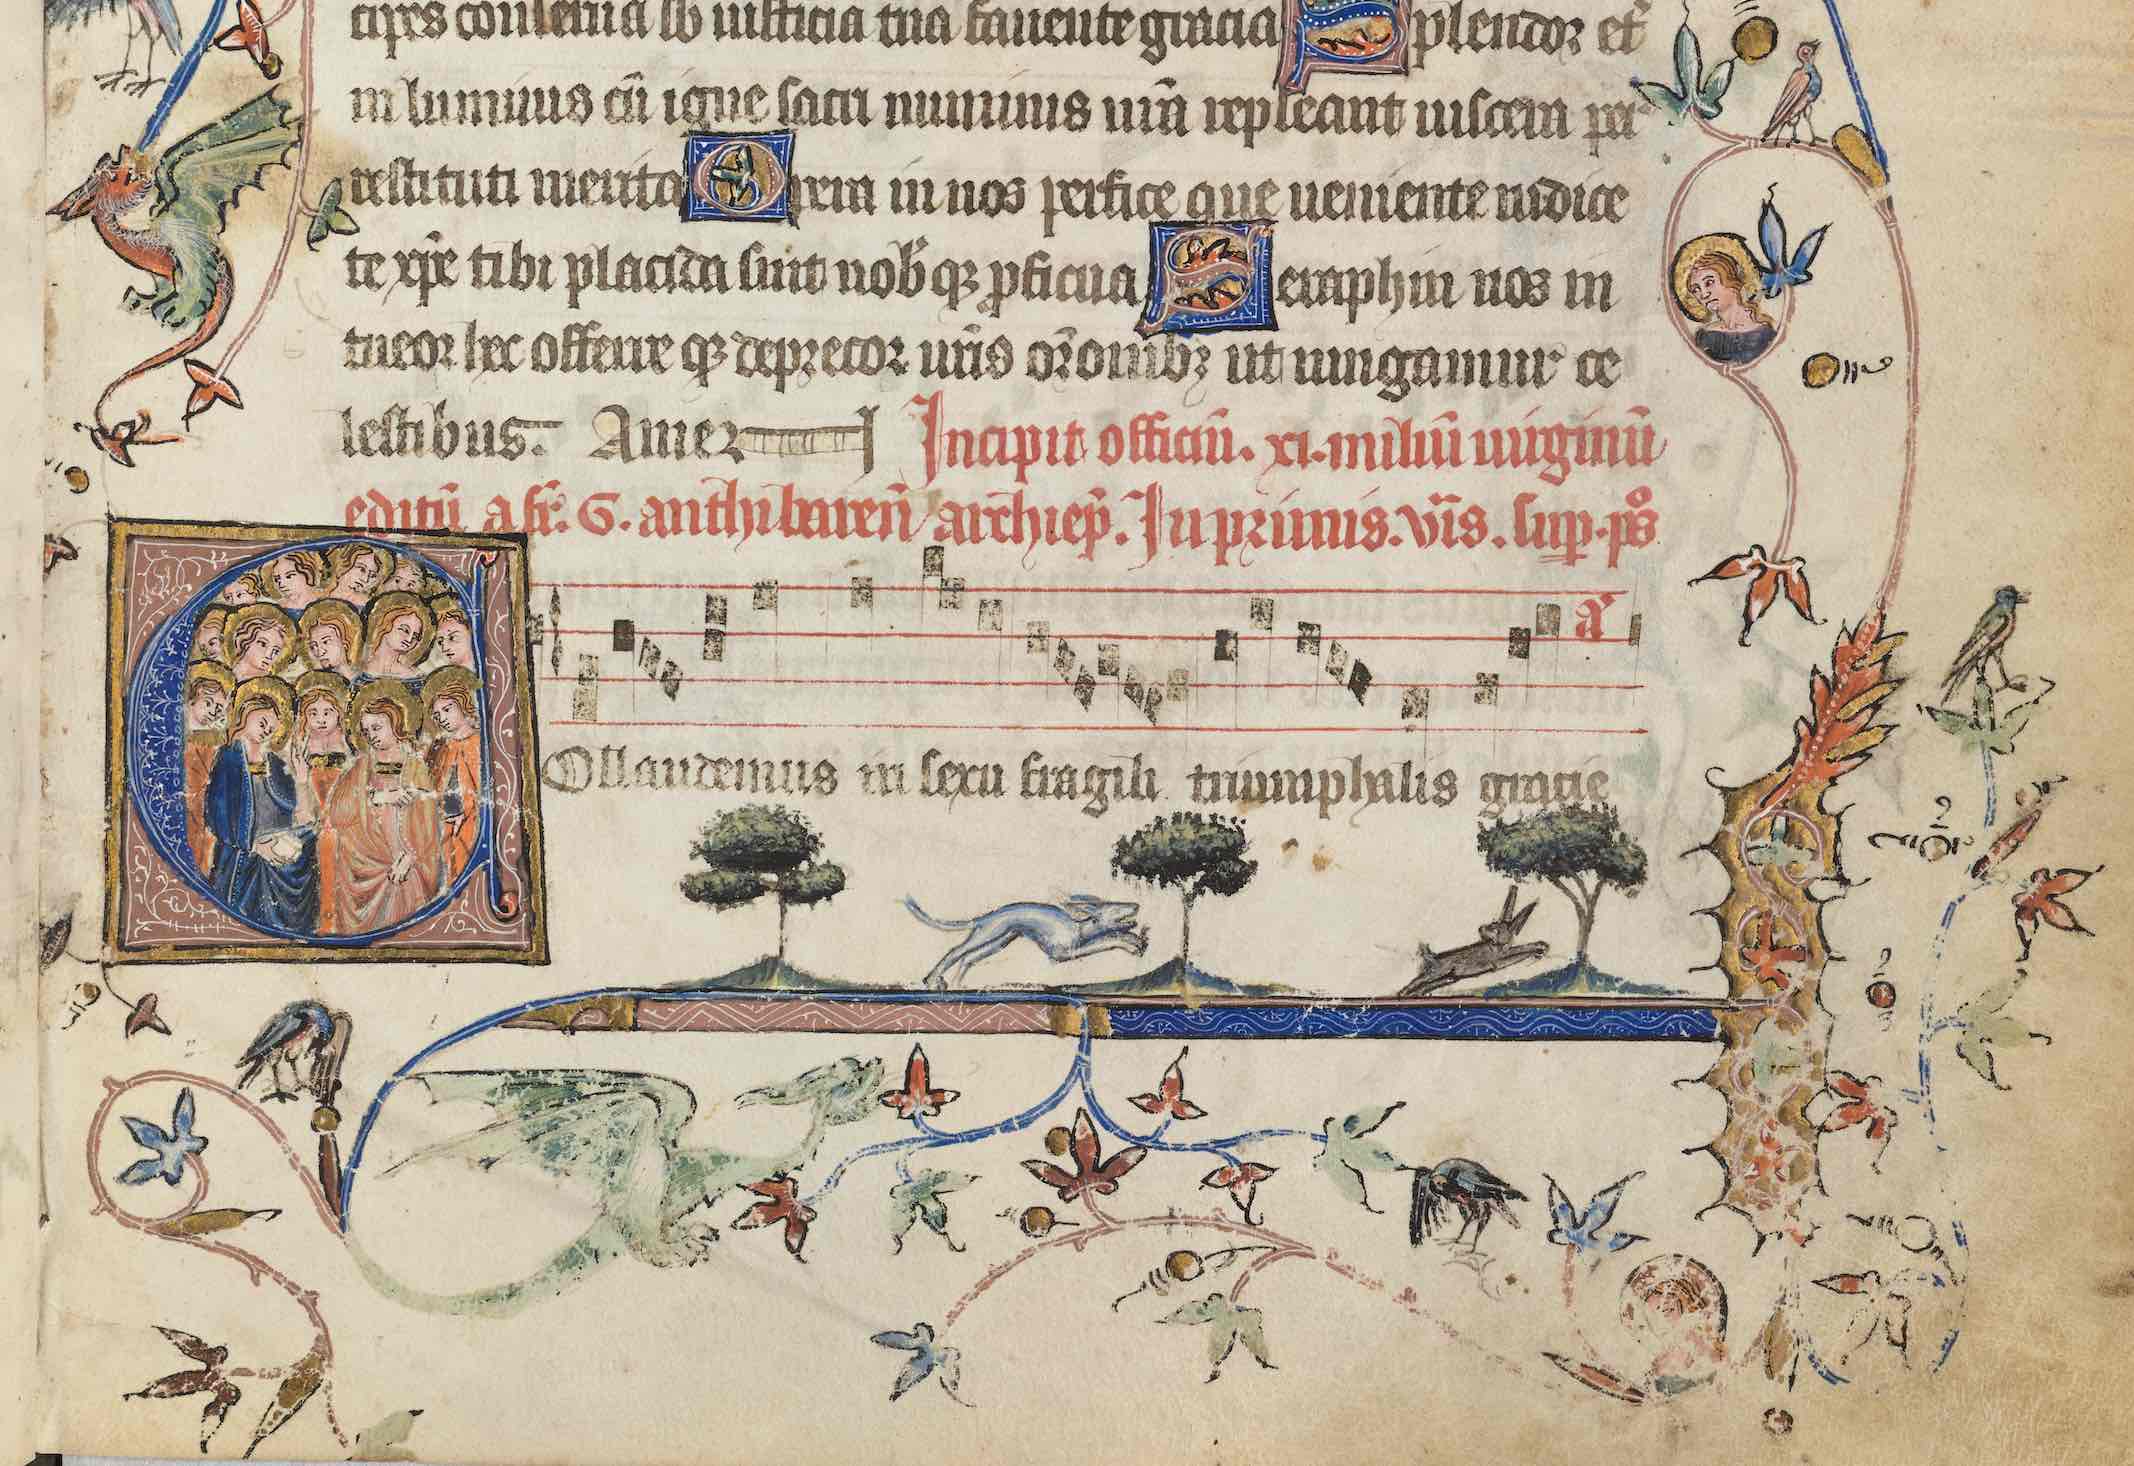 cipes conserua sb iusticia tua fauente gracia Splendor et
in luminus cū igne sacri numinis nrm̄ repleant uiscera per
restituti merita Opera in nos perfice que ueniente iudice
te xp̄e tibi placida sint nob̄ qꝫ ꝓficua Seraphin nos in
tueor hec offerre qꝫ deprecor ur̄is or̄onibꝫ ut iungamur ce
lestibus. Amen Incipit officiū. xi. miliū uirginū
editū a fr̄. G. anthibaren̄ archiep̄. In primis. vīs. sup. ps̄
a
Collaudemus in sexu fragili triumphalis gracie